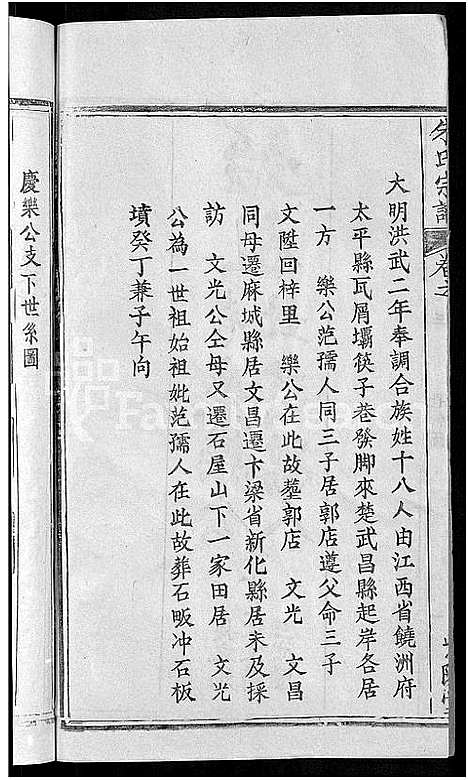 朱氏宗譜
卷之
大明洪武二年奉調合族姓十八人由江西省饒洲府
太平縣瓦屑壩筷子巷發脚來楚武昌縣起岸各居
一方　樂公范孺人同三子居郭店遵父命三子
文陞回梓里　樂公在此故塟郭店　文光　文昌
同母遷麻城縣居文昌遷卞梁省新化縣居未及採
訪　文光公仝母又遷石屋山下一家田居　文光
公為一世祖始祖妣范孺人在此故葬石畈冲石板
墳癸丁兼子午向
慶樂公支下世系圖